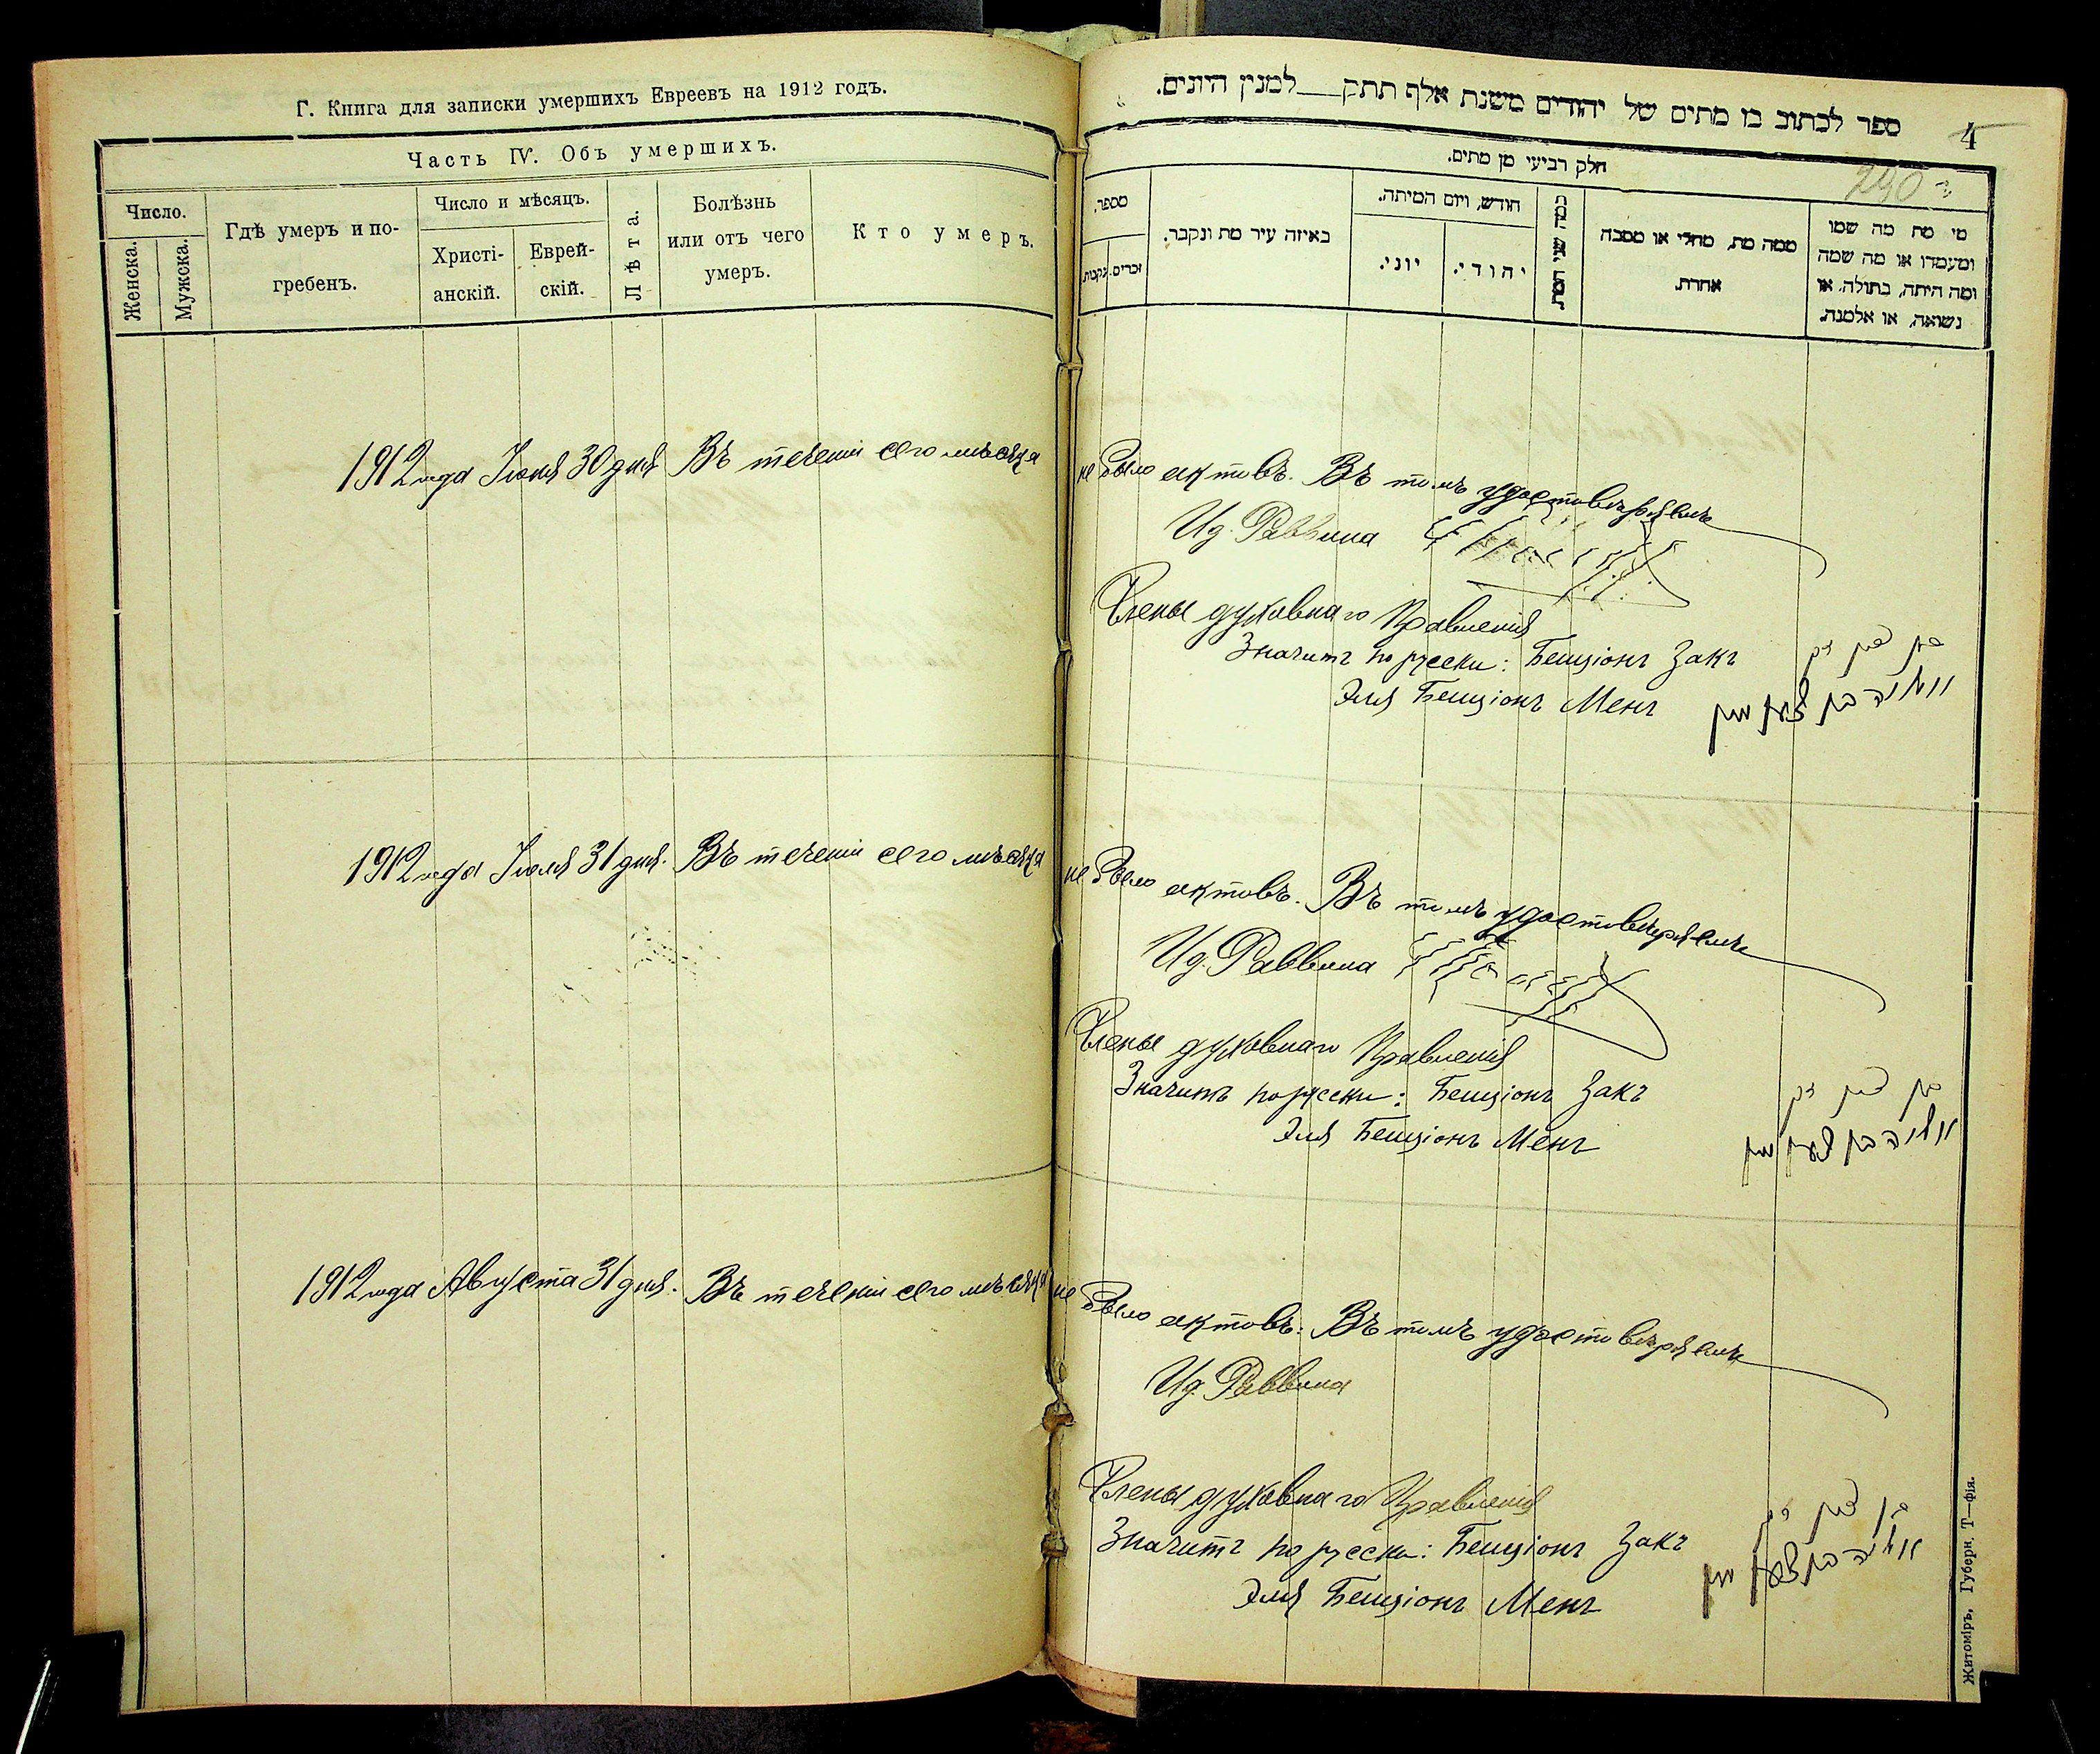 Г. Книга для записки умершихъ Евреевъ на 1912 годъ.
Часть IV. Объ умершихъ.
Число.
Женска.
Мужска.
Гдѣ умеръ и по-
гребенъ.
Число и мѣсяцъ.
Христі-
анскій.
Еврей-
скій.
Лѣта.
Болѣзнь
или отъ чего
умеръ.
Кто умеръ.
ספר לכתוב בו מתים של יהודים משנת אלף תתק למנין היונים.
4
290
חלק רביעי מן מתים.
מספר.
זכרים.
נקבות.
באיזה עיר מת ונקבר.
חודש, ויום המיתה.
יוני.
יהודי.
כמה שני המת.
ממה מת, מחלי או מסבה
אחרת.
מי מת מה שמו
ומעמדו או מה שמה
ומה היתה, בתולה, או
נשואה, או אלמנה.
1912 года Іюня 30 дня Въ теченіи сего мѣсяца не было актовъ. Въ томъ удостовѣряемъ
И д. Раввина
Члены духовнаго Правленія
Значитъ по русски: Бенціонъ Закъ
בן ציון זק
Эля Бенціонъ Менъ
אליה בן ציון מען
1912 года Іюля 31 дня. Въ теченіи сего мѣсяца не было актовъ. Въ томъ удостовѣряемъ
И д. Раввина
Члены духовнаго Правленія
Значитъ по русски: Бенціонъ Закъ
בן ציון זק
Эля Бенціонъ Менъ
אליה בן ציון מען
1912 года Августа 31 дня. Въ теченіи сего мѣсяца не было актовъ: Въ томъ удостовѣряемъ
И д. Раввина
Члены духовнаго Правленія
Значитъ по русски: Бенціонъ Закъ
בן ציון זק
Эля Бенціонъ Менъ
אליה בן ציון מען
Житоміръ, Губерн. Т—фія.